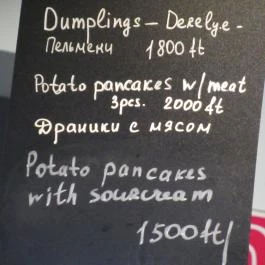 Dumplings – Derelye -
Пельмени 1800 ft
Potato pancakes w/meat
3pcs. 2000 ft
Драники с мясом
Potato pancakes
with sourcream
1500 ft/